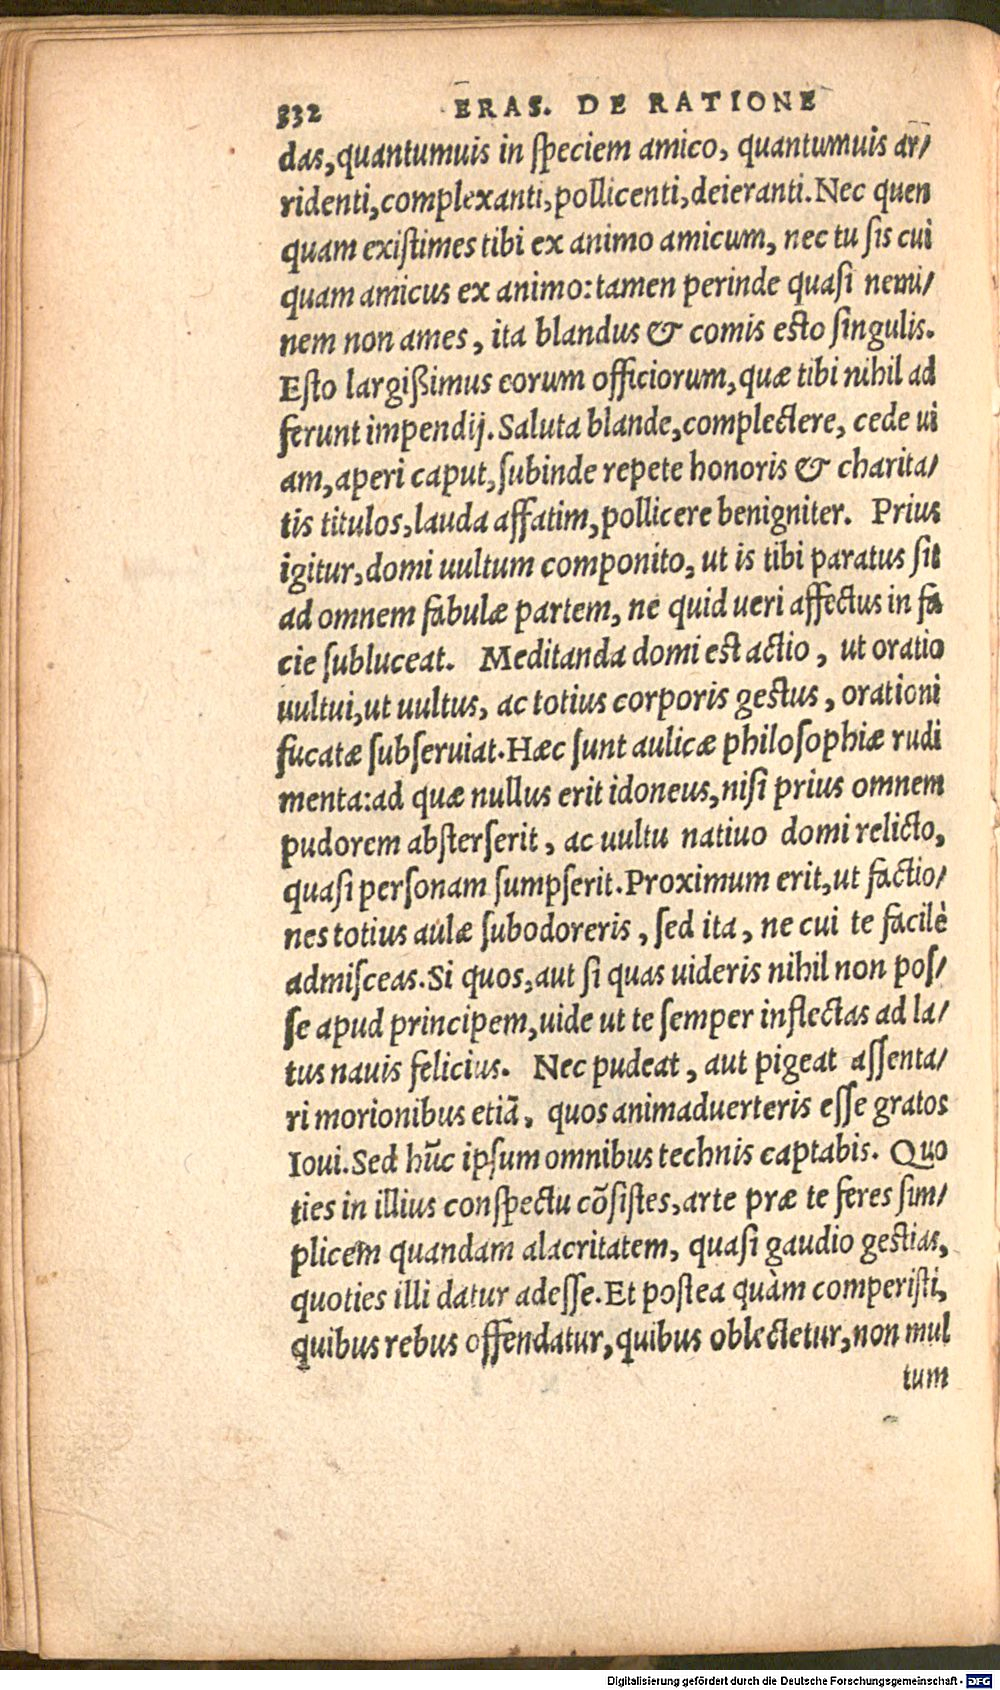 332 ERAS. DE RATIONE
das, quantumuis in ſpeciem amico, quantumuis ar/
ridenti, complexanti, pollicenti, deieranti. Nec quen
quam exiſtimes tibi ex animo amicum, nec tu ſis cui
quam amicus ex animo: tamen perinde quaſi nemi/
nem non ames, ita blandus & comis eſto ſingulis.
Eſto largißimus eorum officiorum, quæ tibi nihil ad
ferunt impendij. Saluta blande, complectere, cede ui
am, aperi caput, ſubinde repete honoris & charita/
tis titulos, lauda affatim, pollicere benigniter. Prius
igitur, domi uultum componito, ut is tibi paratus ſit
ad omnem fabulæ partem, ne quid ueri affectus in fa
cie ſubluceat. Meditanda domi eſt actio, ut oratio
uultui, ut uultus, ac totius corporis geſtus, orationi
fucatæ ſubſeruiat. Hæc ſunt aulicæ philoſophiæ rudi
menta: ad quæ nullus erit idoneus, niſi prius omnem
pudorem abſterſerit, ac uultu natiuo domi relicto,
quaſi perſonam ſumpſerit. Proximum erit, ut factio/
nes totius aulæ ſubodoreris, ſed ita, ne cui te facilè
admiſceas. Si quos, aut ſi quas uideris nihil non poſ/
ſe apud principem, uide ut te ſemper inflectas ad la/
tus nauis felicius. Nec pudeat, aut pigeat aſſenta/
ri morionibus etiã, quos animaduerteris eſſe gratos
Ioui. Sed hũc ipſum omnibus technis captabis. Quo
ties in illius conſpectu cõſiſtes, arte præ te feres ſim/
plicem quandam alacritatem, quaſi gaudio geſtias,
quoties illi datur adeſſe. Et poſtea quàm comperiſti,
quibus rebus offendatur, quibus oblectetur, non mul
tum
Digitalisierung gefördert durch die Deutsche Forschungsgemeinschaft - DFG